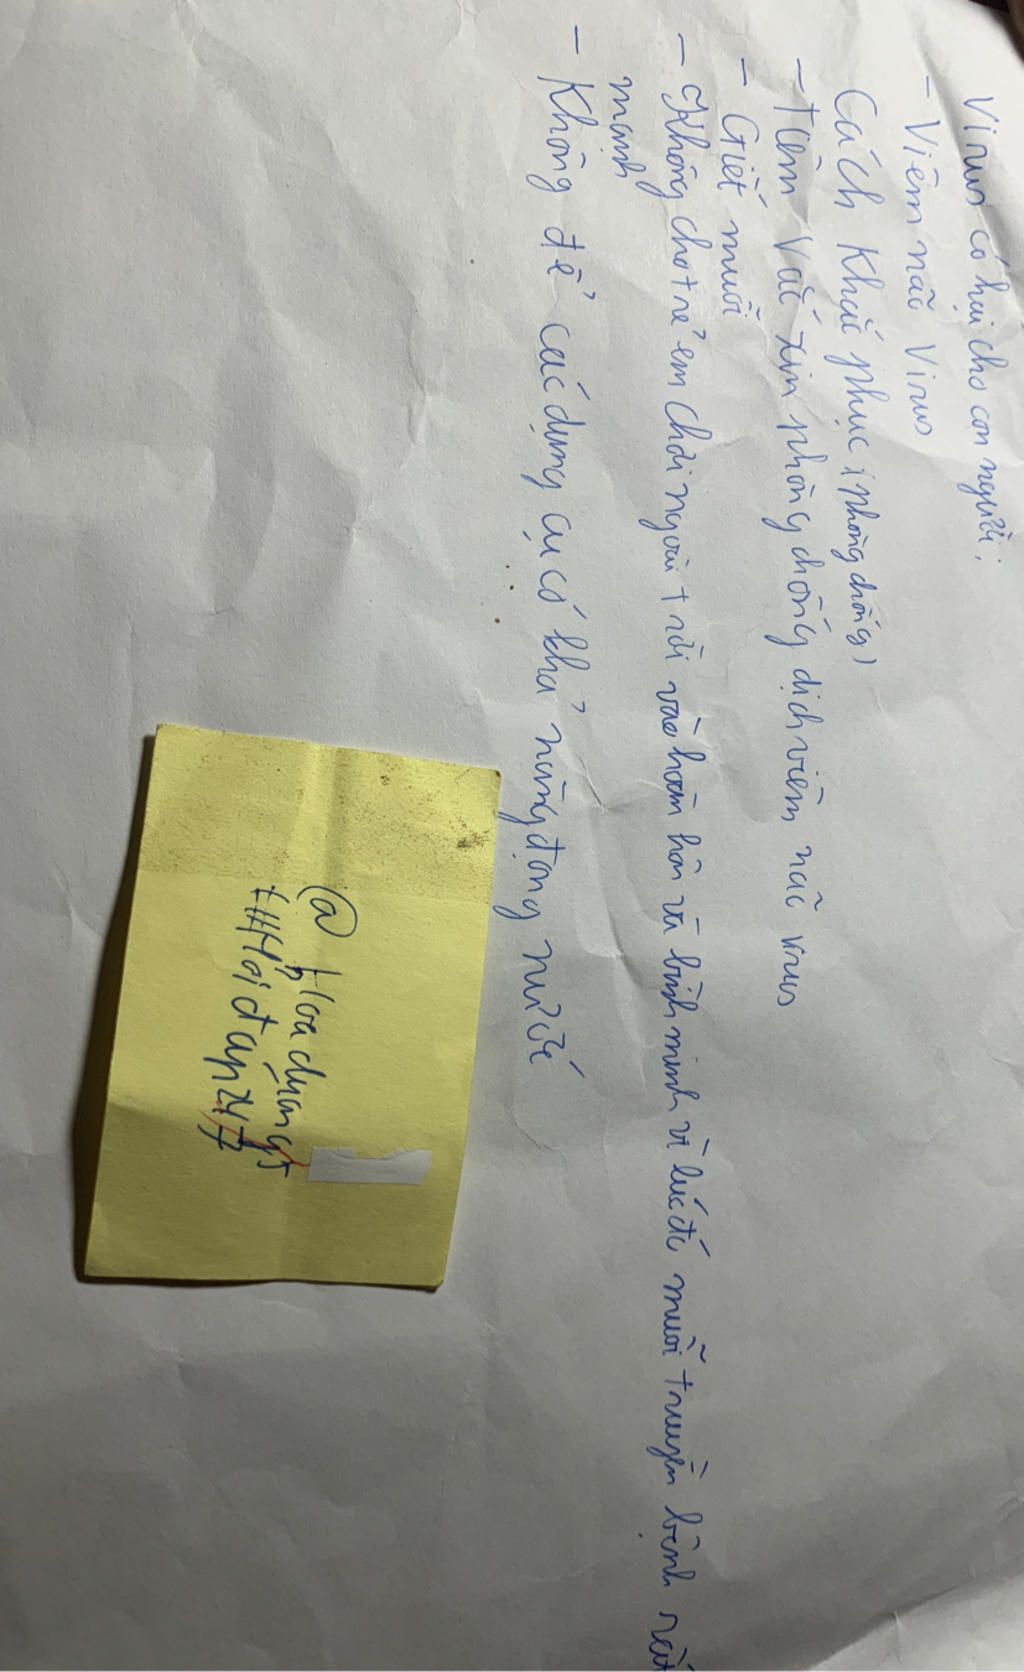 Virus có hại cho con người:
- Viêm não Virus
Cách khắc phục (phòng chống)
- Tiêm Vắc xin phòng chống dịch viêm não virus
- Giết muỗi
- Không cho trẻ em chơi ngoài trời vào hoàn hôn và bình minh vì lúc đó muỗi truyền bệnh rất
mạnh
- Không để các dụng cụ có khả năng đọng nước
@ Hoadụng
#Hỏiđap247